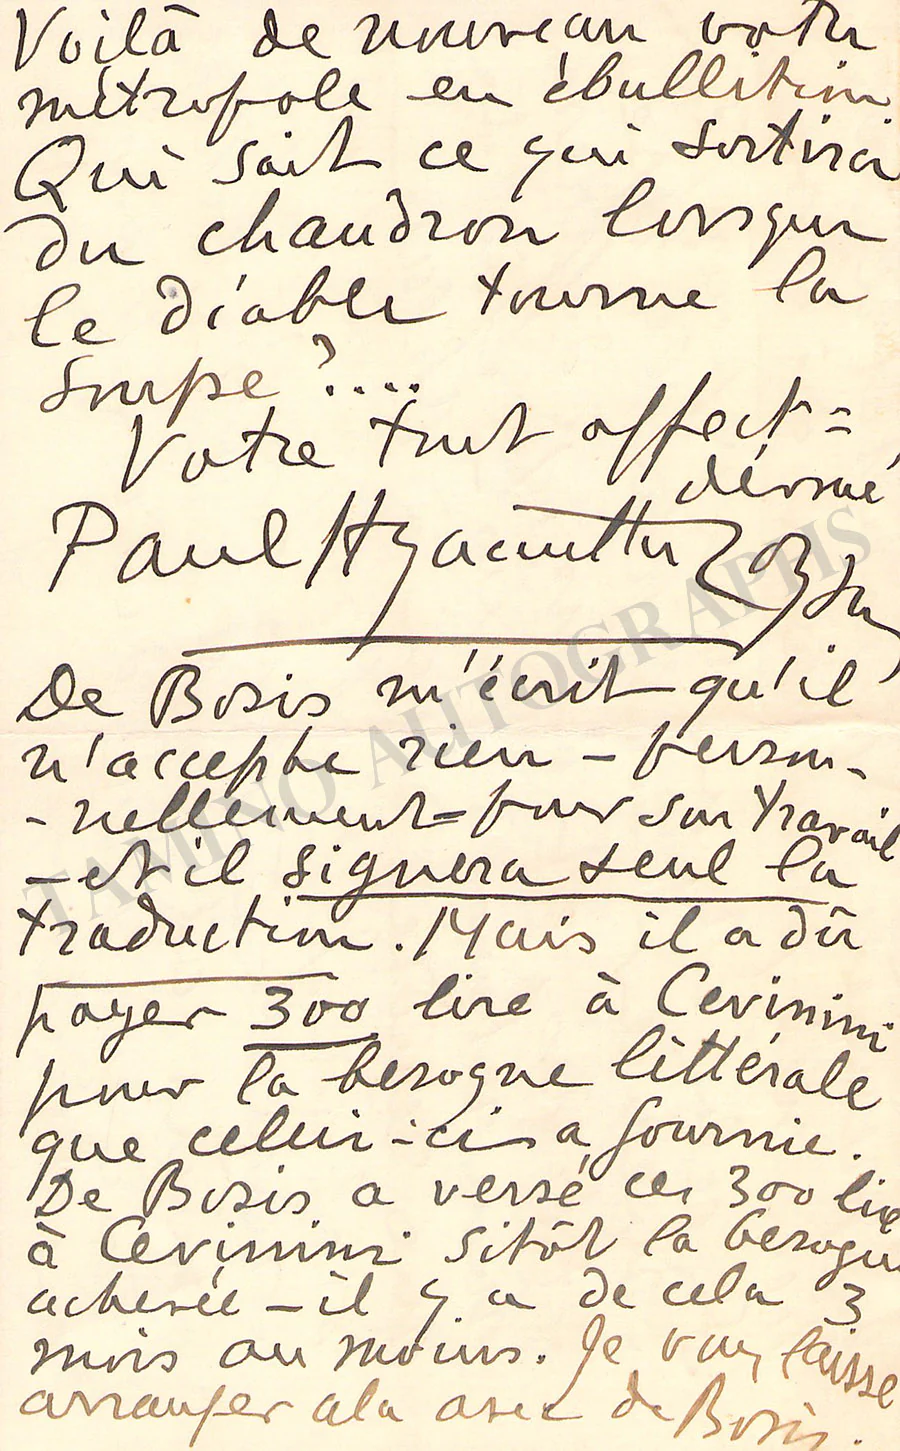 Voilà de nouveau votre
métropole en ébullition
Qui sait ce qui sortira
du chaudron lorsque
le diable tourne la
soupe ?....
Votre tout affect=
dévoué
Paul Hyacinthe Loyson
De Bosis m'écrit qu'il
n'accepte rien – person-
- nellement = pour son travail
– et il signera seul la
traduction. Mais il a dû
payer 300 lire à Cevinini
pour la besogne littérale
que celui-ci a fournie.
De Bosis a versé ces 300 lire
à Cevinini sitôt la besogne
achevée – il y a de cela 3
mois au moins. Je vous laisse
arranger cela avec de Bosis.
TAMINO AUTOGRAPHS